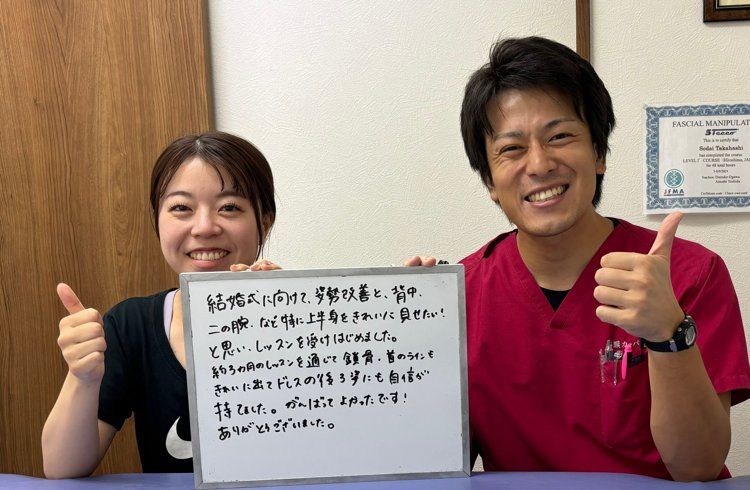 結婚式に向けて、姿勢改善と、背中、
二の腕、など特に上半身をきれいに見せたい!
と思い、レッスンを受けはじめました。
約3カ月のレッスンを通じて鎖骨・首のラインも
きれいに出てドレスの後ろ姿にも自信が
持てました。がんばってよかったです!
ありがとうございました。
FASCIAL MANIPULAT
Stecco
This is to certify that
Sodai Takahashi
has completed the course
LEVEL I° COURSE
for 48 total hours
JFMA